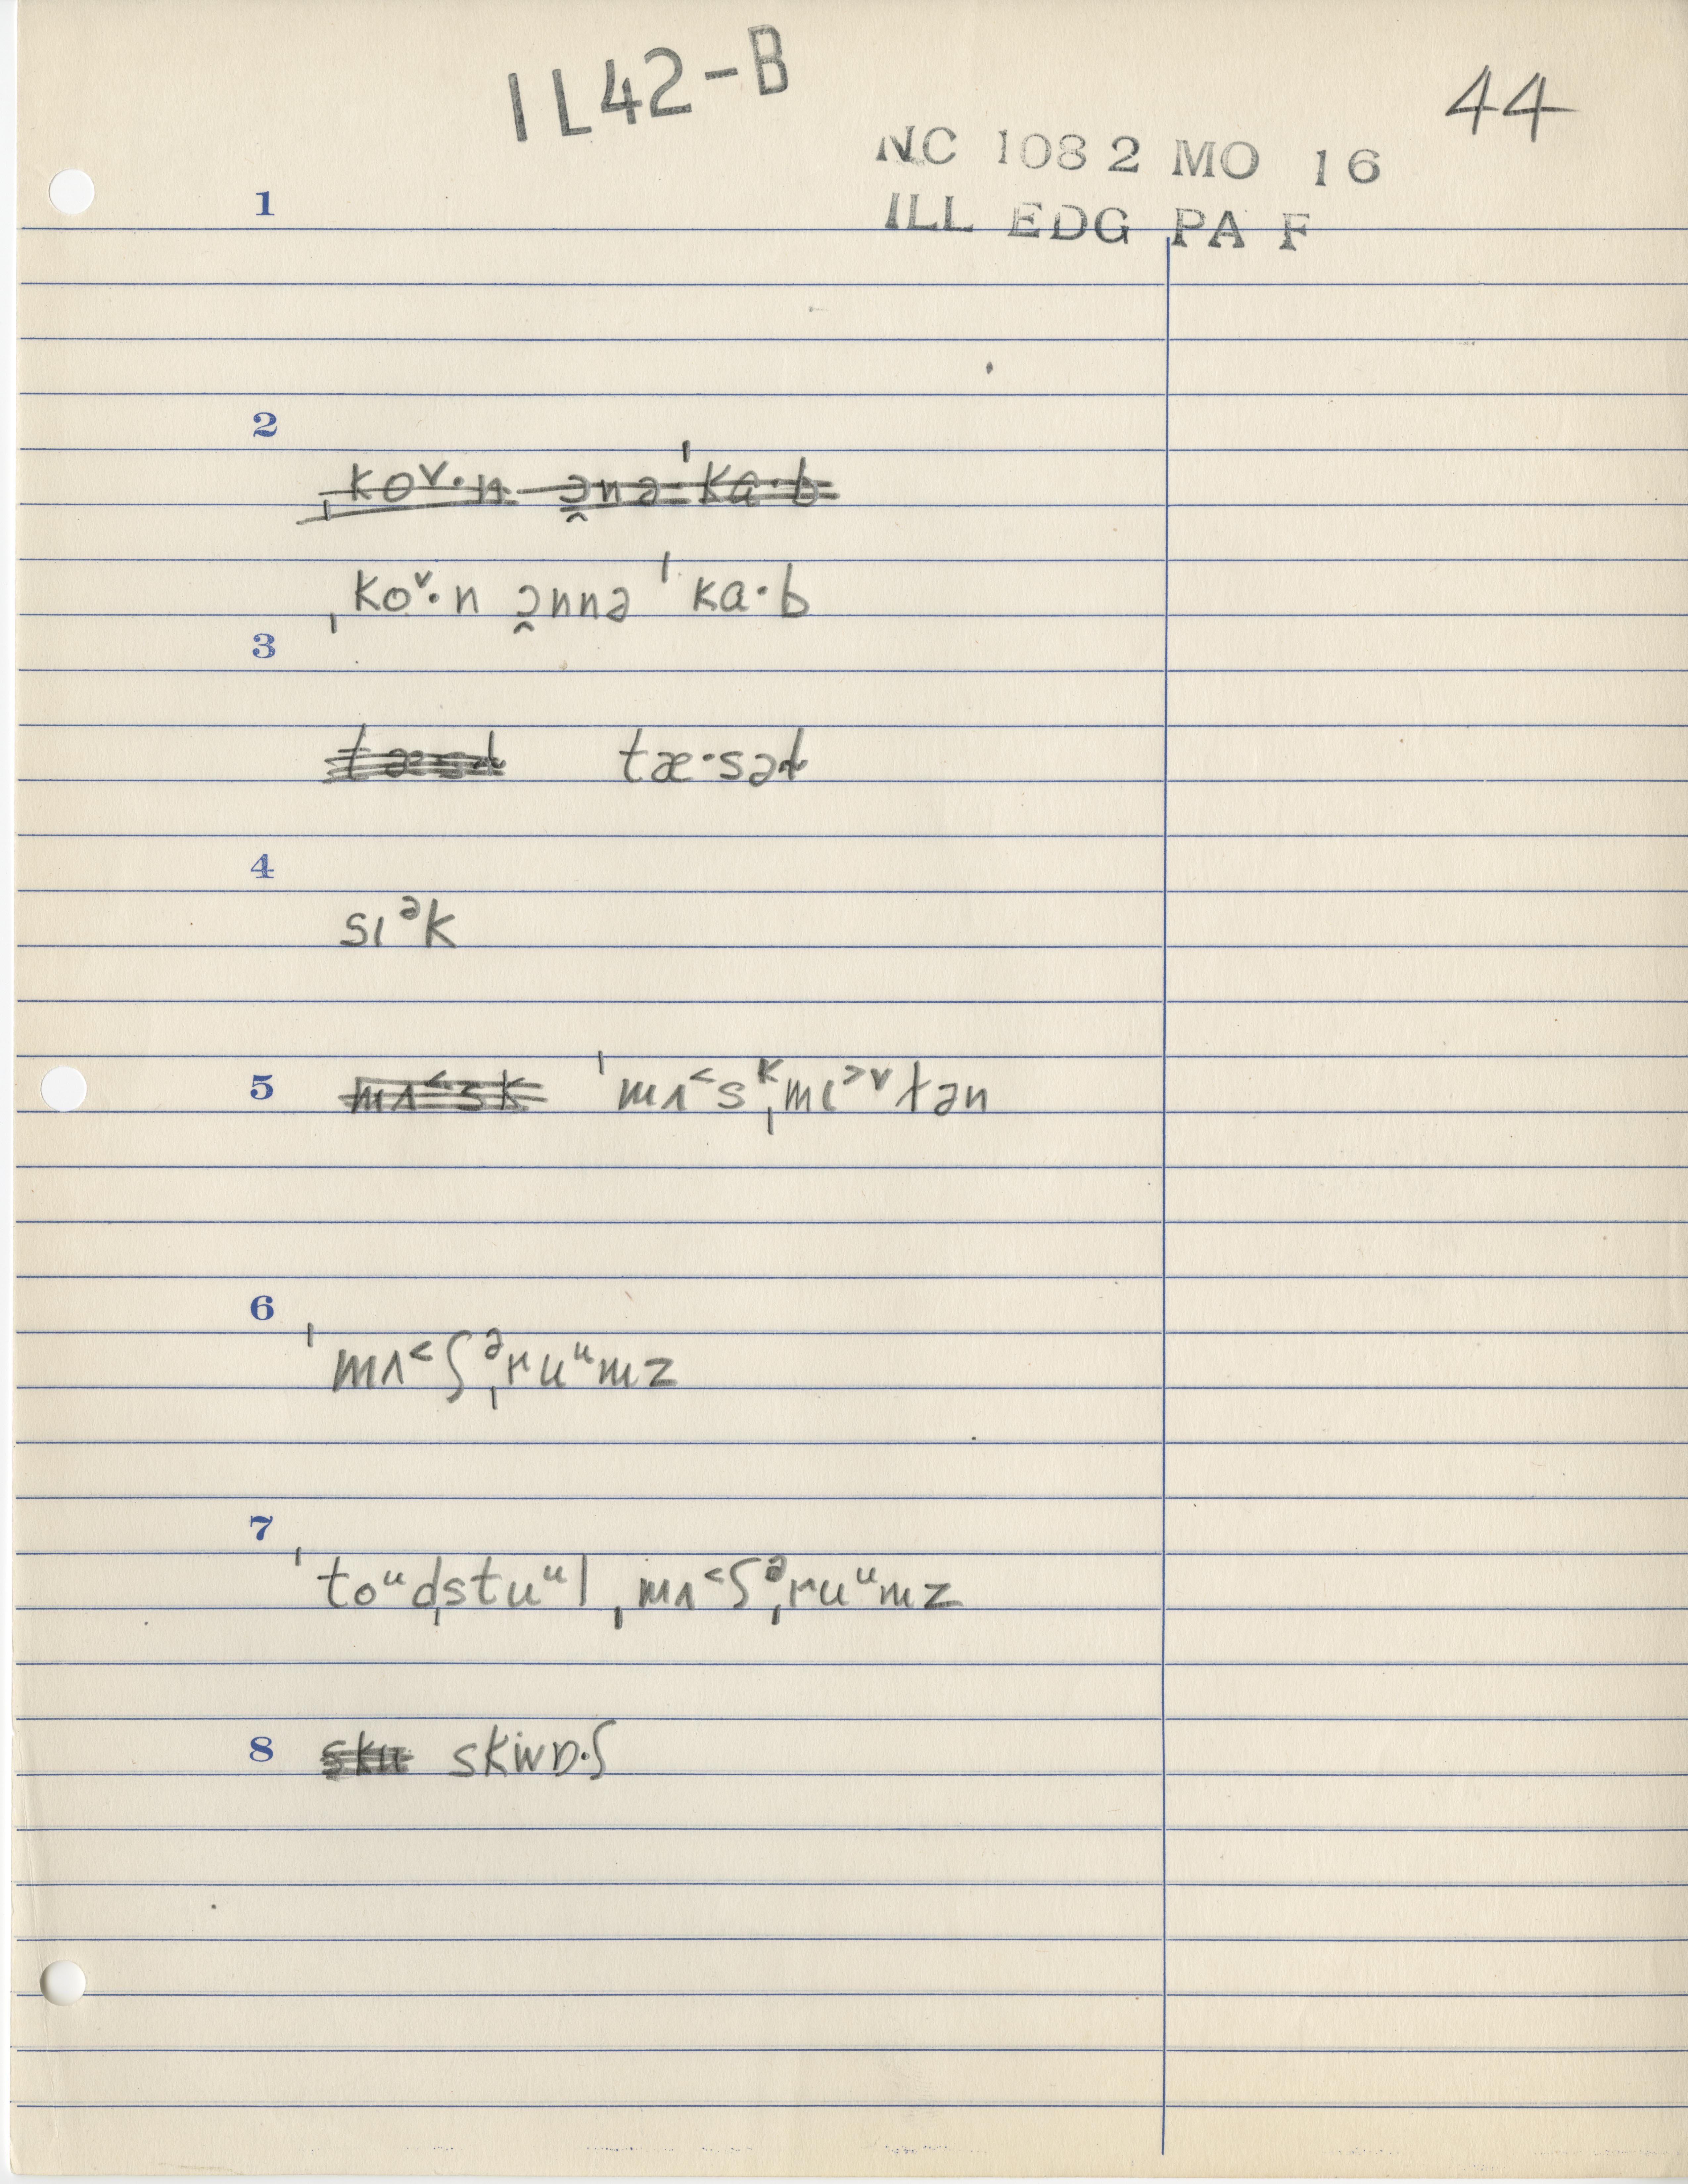 IL42-B
44
NC 1082 MO 16
ILL EDG PA F
1
2
ˌkoᵛ·n ə̭nə·ˈka·b
ˌkoᵛ·n ə̭nnəˈka·b
3
tæsət tæ·sət
4
sɪᵊk
5 mʌ˂sk ˈmʌ˂sᵏˌmɪ˃ᵛtən
6
ˈmʌ˂ʃᵊˌruᵘmz
7
ˈtoᵘdˌstuᵘl ˌmʌ˂ʃᵊˌruᵘmz
8 sku skwɒ·ʃ